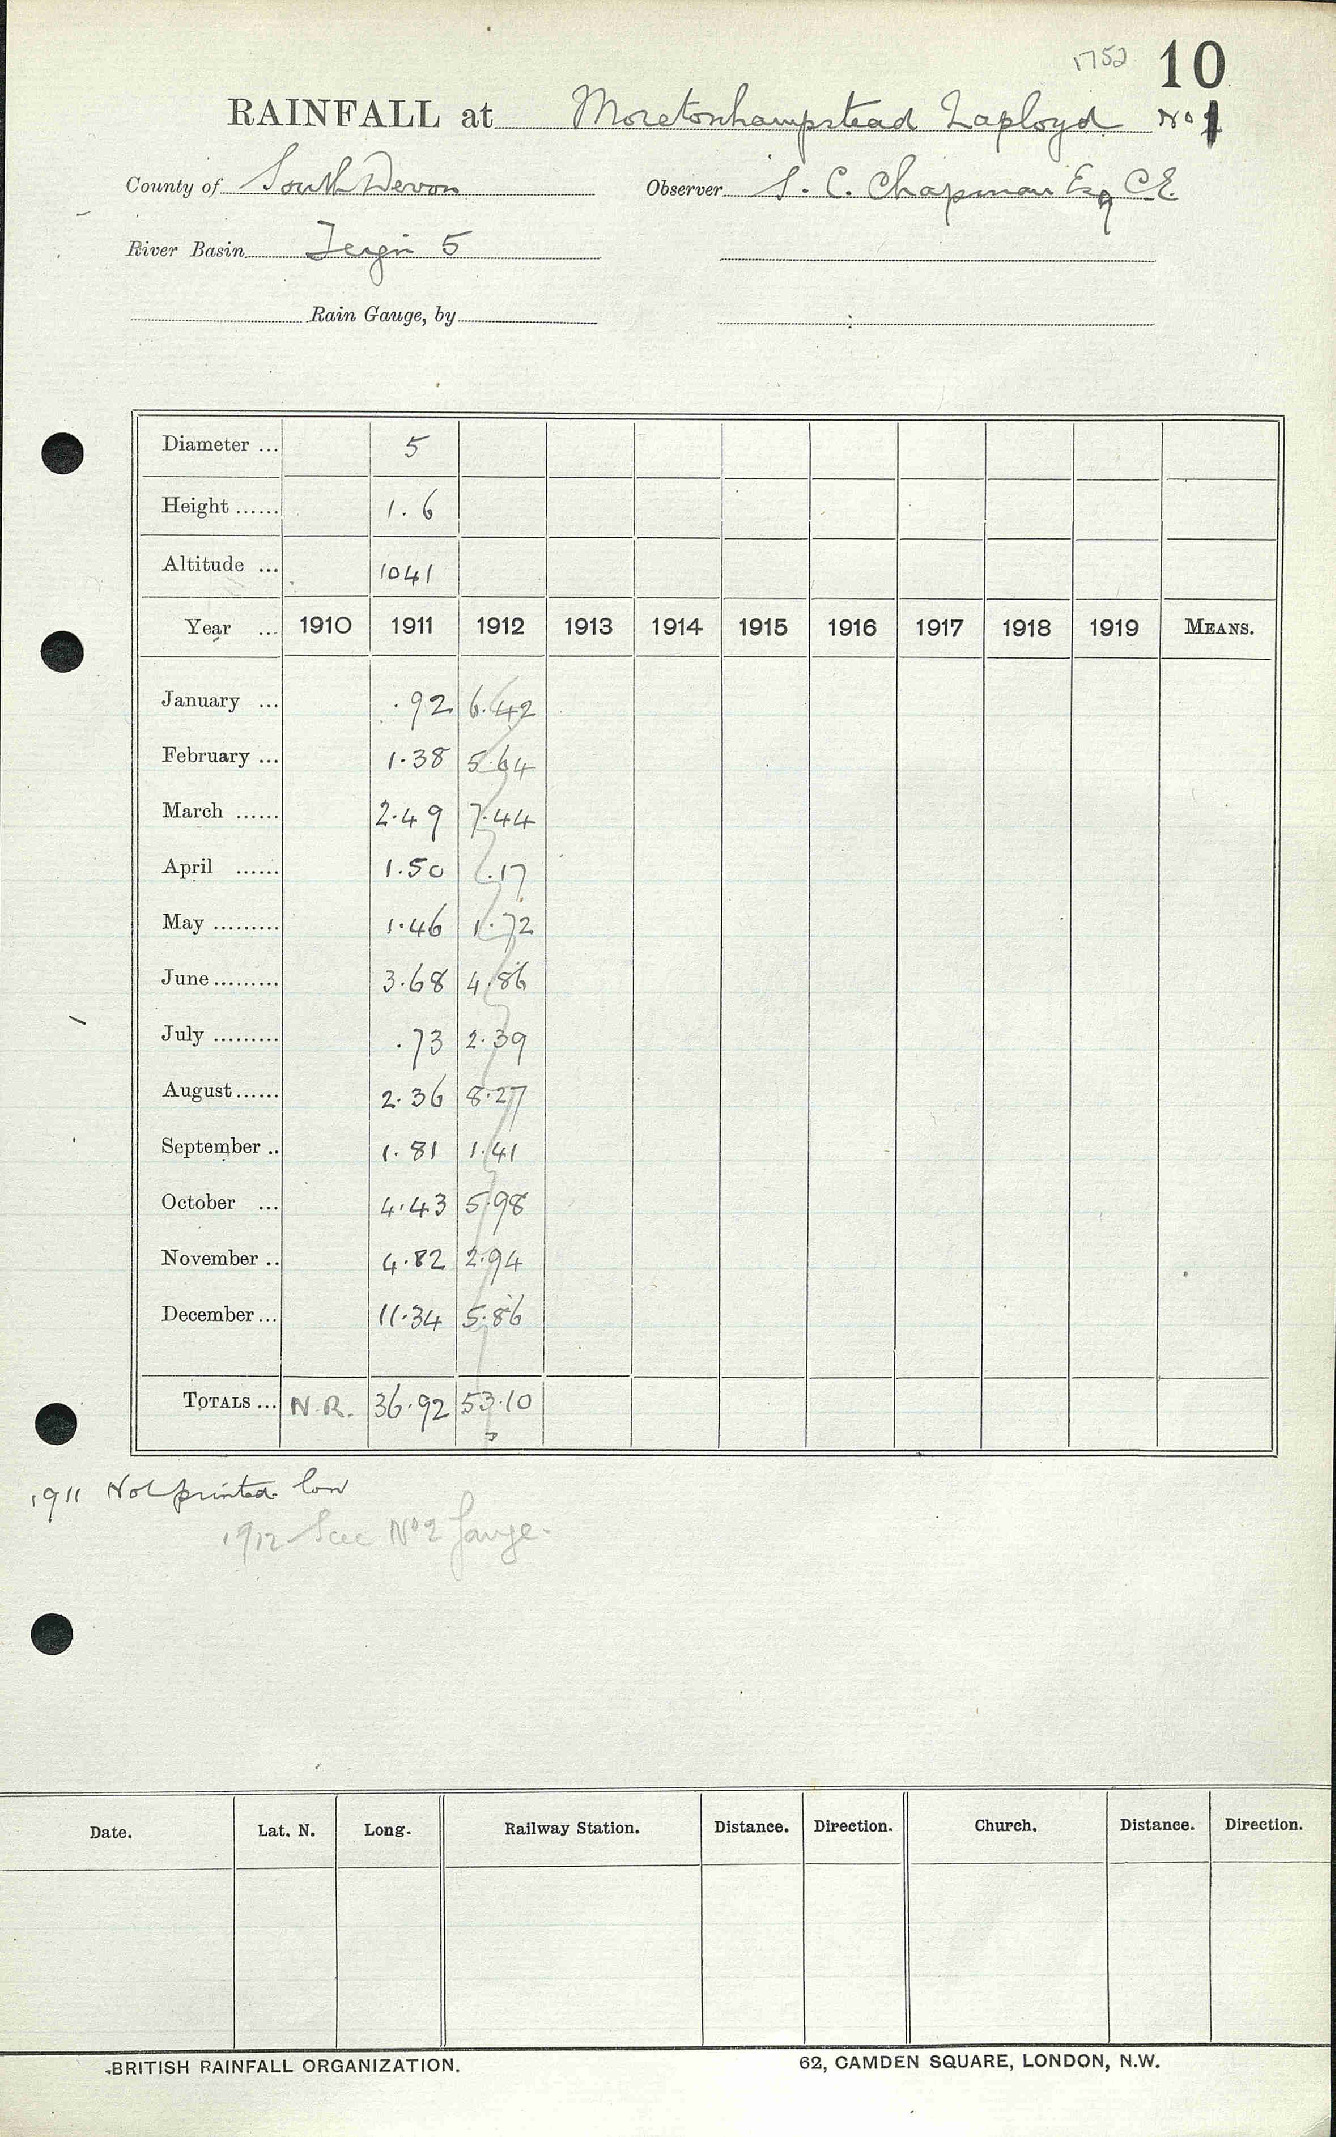 1752 10
RAINFALL at Moretonhampstead Laployd No 1
County of South Devon Observer S. C. Chapman Esq C.E.
River Basin Teign 5
Rain Gauge, by
Diameter ... 5
Height ...... 1.6
Altitude ... 1041
Year ... 1910 1911 1912 1913 1914 1915 1916 1917 1918 1919 MEANS.
January ... .92 6.42
February ... 1.38 5.64
March ...... 2.49 7.44
April ...... 1.50 .17
May ......... 1.46 1.72
June ......... 3.68 4.86
July ......... .73 2.39
August ...... 2.36 8.27
September .. 1.81 1.41
October ... 4.43 5.98
November .. 4.82 2.94
December ... 11.34 5.86
TOTALS ... N.R. 36.92 53.10
1911 Not printed low
1912 See No 2 gauge.
Date. Lat. N. Long. Railway Station. Distance. Direction. Church. Distance. Direction.
BRITISH RAINFALL ORGANIZATION. 62, CAMDEN SQUARE, LONDON, N.W.